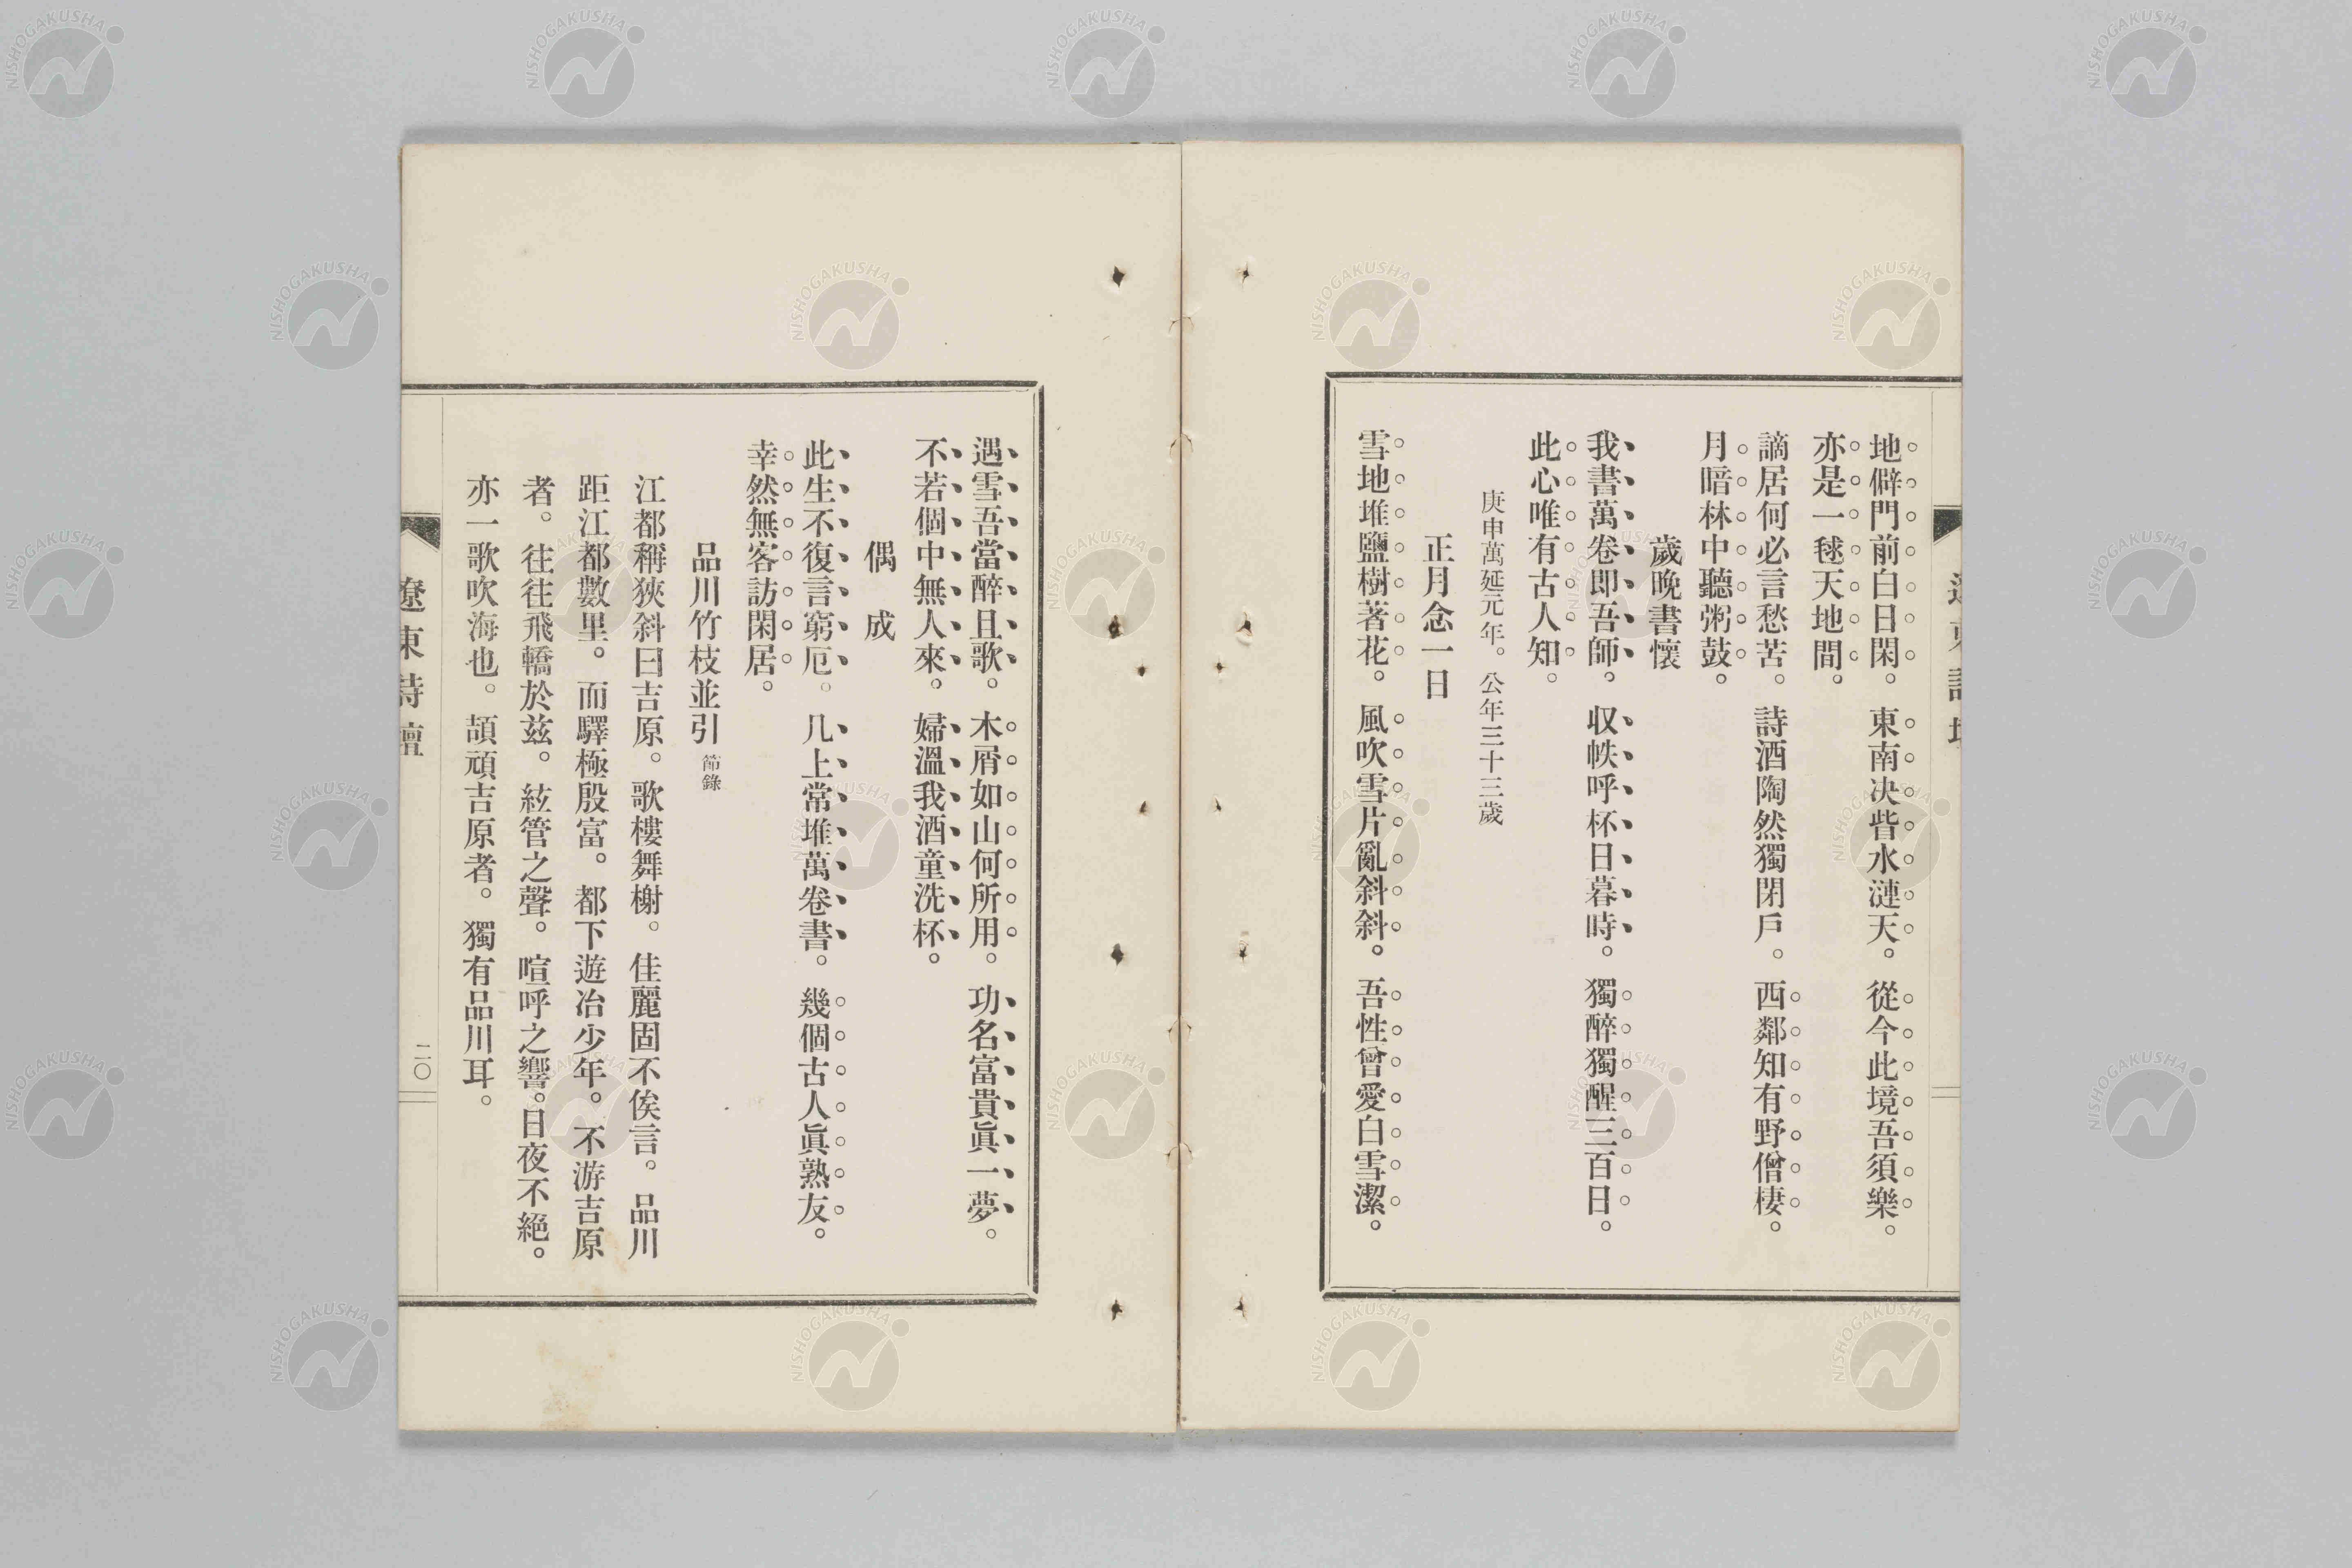 地僻門前白日閑。東南决眥水漣天。從今此境吾須樂。
亦是一毬天地間。
謫居何必言愁苦。詩酒陶然獨閉戶。西鄰知有野僧棲。
月暗林中聽粥鼓。
歲晩書懷
我書萬卷即吾師。収帙呼杯日暮時。獨醉獨醒三百日。
此心唯有古人知。
庚申萬延元年。公年三十三歲
正月念一日
雪地堆鹽樹著花。風吹雪片亂斜斜。吾性曾愛白雪潔。
遇雪吾當醉且歌。木屑如山何所用。功名富貴眞一夢。
不若個中無人來。婦溫我酒童洗杯。
偶成
此生不復言窮厄。几上常堆萬卷書。幾個古人眞熟友。
幸然無客訪閑居。
品川竹枝並引 節錄
江都稱狹斜曰吉原。歌樓舞榭。佳麗固不俟言。品川
距江都數里。而驛極殷富。都下遊冶少年。不游吉原
者。往往飛轎於茲。絃管之聲。喧呼之響。日夜不絕。
亦一歌吹海也。頡頑吉原者。獨有品川耳。
遼東詩壇
二〇
NISHOGAKUSHA